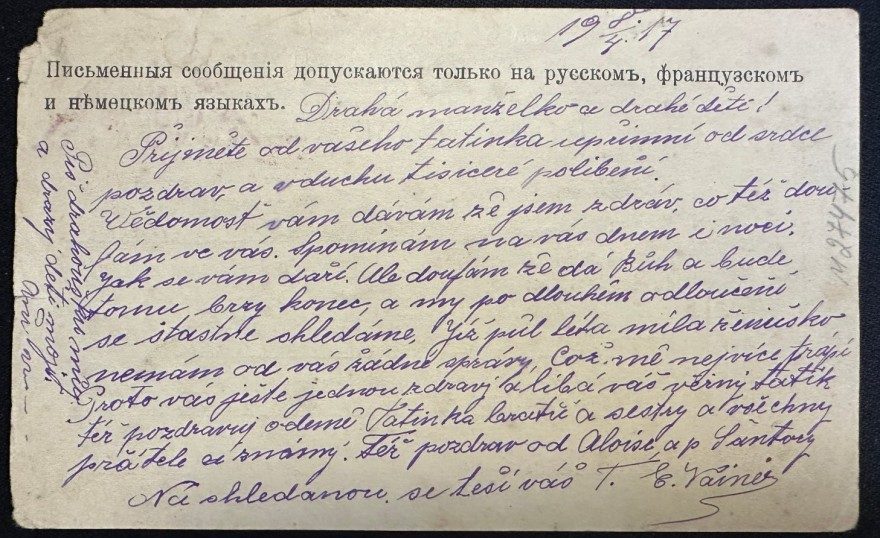 19 8/4. 17
Письменныя сообщенія допускаются только на русскомъ, французскомъ
и нѣмецкомъ языкахъ.
Drahá manželko a drahé děti!
Přijměte od vašeho tatínka upřímní od srdce
pozdrav, a vduchu tisiceré políbení.
Wědomost vám dávám žě jsem zdráv, co též dou
fám ve vás. Spomínám na vás dnem i nocí.
Jak se vám daří. Ale doufám žě dá Bůh a bude
tomu brzy konec, a my po dlouhém odloučení
se štastně shledáme. Již půl léta milá ženuško
nemám od vás žádné správy. Což mě nejvíce trápí
Proto vás ještě jednou zdraví a líbá váš věrný tatík
též pozdravuj odemě Tatínka bratří a sestry a všechny
přátele a známý. Též pozdrav od Aloise, a p Šántory
Na shledanou se těší váš T. E. Vainer
a drazy děti mojih
N 27475